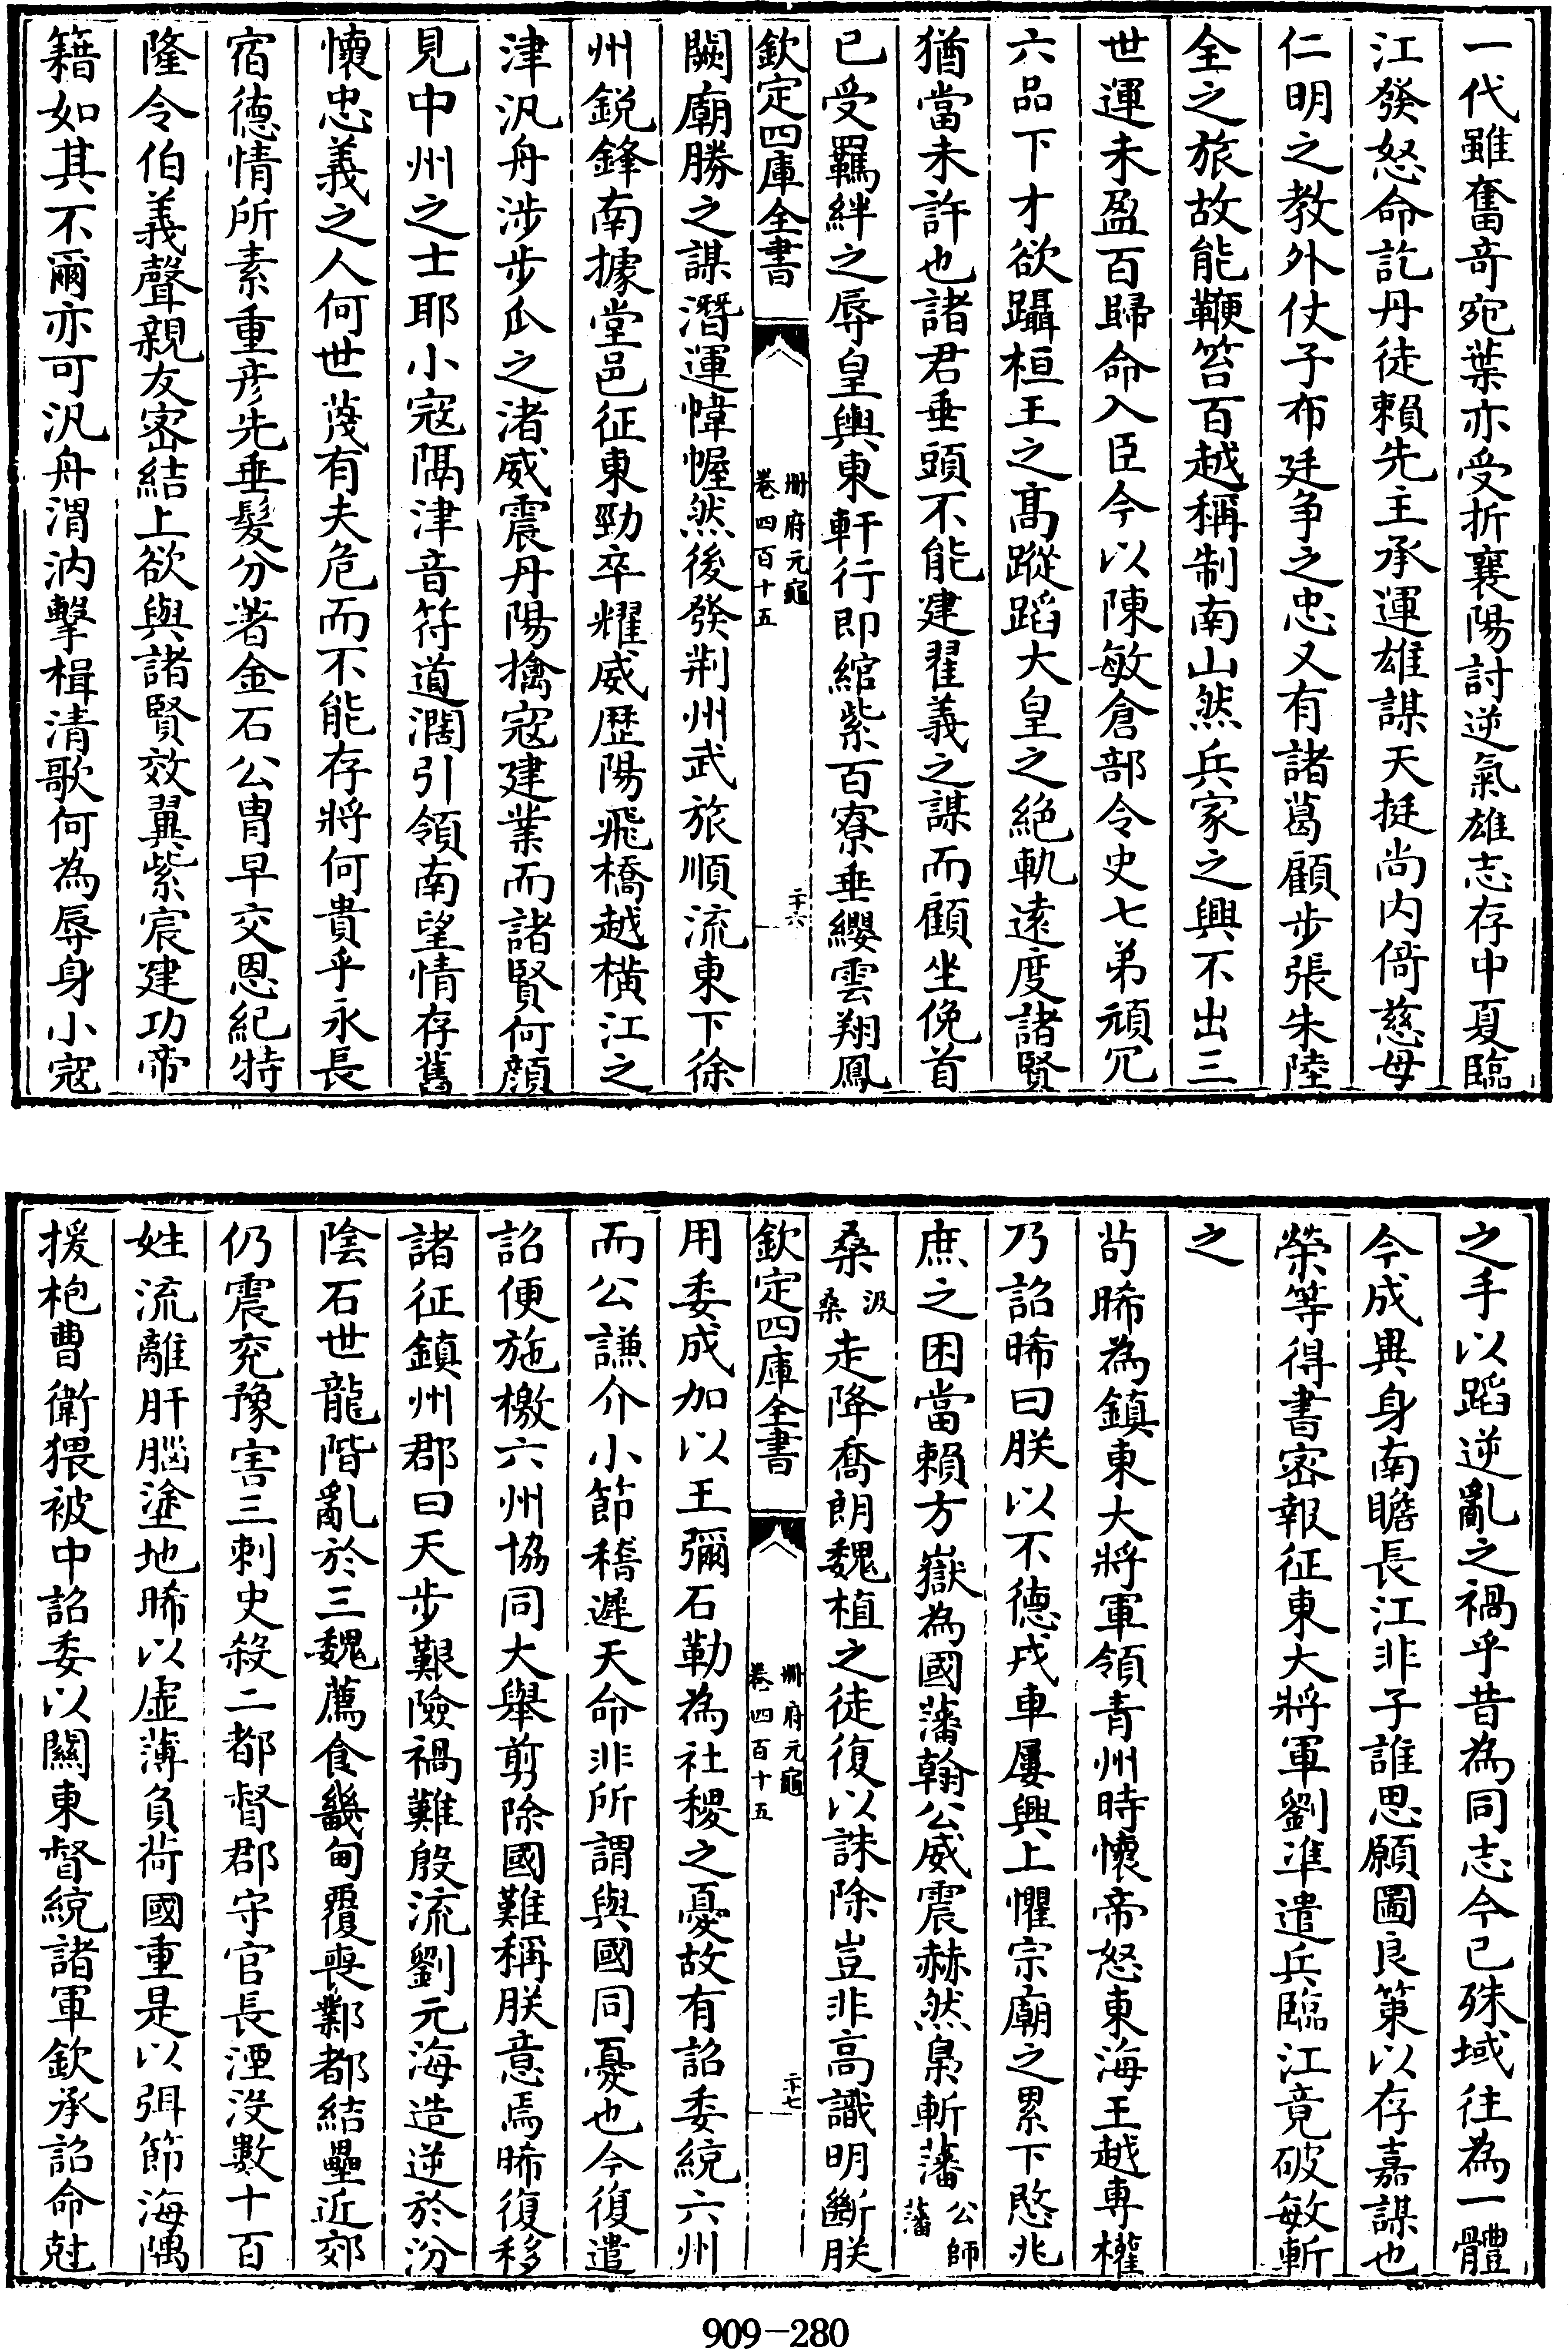 一代雖奮奇宛葉亦受折襄陽討逆氣雄志存中夏臨
江發怒命訖丹徒賴先主承運雄謀天挺尚内倚慈母
仁明之教外仗子布廷争之忠又有諸葛顧步張朱陸
全之旅故能鞭笞百越稱制南山然兵家之興不出三
世運未盈百歸命入臣今以陳敏倉部令史七弟頑冗
六品下才欲躡桓王之髙蹤蹈大皇之絶軌逺度諸賢
猶當未許也諸君垂頭不能建翟義之謀而顧坐俛首
已受羈絆之辱皇輿東軒行即綰紫百寮垂纓雲翔鳳
欽定四庫全書
冊府元龜
卷四百十五
二十六
闕廟勝之謀潛運幃幄然後發荆州武旅順流東下徐
州銳鋒南據堂邑征東勁卒耀威歴陽飛橋越横江之
津汎舟涉步瓜之渚威震丹陽擒寇建業而諸賢何顔
見中州之士耶小寇隔津音符道濶引領南望情存舊
懐忠義之人何世蔑有夫危而不能存將何貴乎永長
宿德情所素重彦先垂髮分著金石公胄早交恩紀特
隆令伯義聲親友宻結上欲與諸賢效翼紫宸建功帝
籍如其不爾亦可汎舟渭汭擊楫清歌何為辱身小寇
之手以蹈逆亂之禍乎昔為同志今已殊域往為一體
今成異身南瞻長江非子誰思願圖良策以存嘉謀也
榮等得書宻報征東大將軍劉準遣兵臨江竟破敏斬
之
茍晞為鎮東大將軍領青州時懷帝怒東海王越専權
乃詔晞曰朕以不德戎車屢興上懼宗廟之累下愍兆
庶之困當賴方嶽為國藩翰公威震赫然梟斬藩公師藩
桑汲桑走降喬朗魏植之徒復以誅除豈非高識明斷朕
欽定四庫全書
冊府元龜
卷四百十五
二十七
用委成加以王彌石勒為社稷之憂故有詔委統六州
而公謙介小節稽遲天命非所謂與國同憂也今復遣
詔便施檄六州協同大舉剪除國難稱朕意焉晞復移
諸征鎮州郡曰天步艱險禍難殷流劉元海造逆於汾
陰石世龍階亂於三魏薦食畿甸覆喪鄴都結壘近郊
仍震兖豫害三刺史殺二都督郡守官長湮没數十百
姓流離肝腦塗地晞以虛薄負荷國重是以弭節海隅
援枹曹衛猥被中詔委以關東督統諸軍欽承詔命尅
909-280